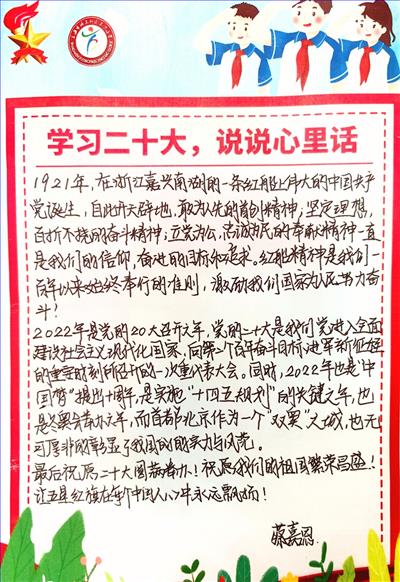 学习二十大，说说心里话
1921年，在浙江嘉兴南湖的一条红船上伟大的中国共产
党诞生，自此开天辟地，敢为人先的首创精神，坚定理想，
百折不挠的奋斗精神，立党为公，忠诚为民的奉献精神一直
是我们的信仰，奋进的目标和追求。红船精神是我们一
百年以来始终奉行的准则，激励我们国家为人民努力奋
斗！
2022年是党的20大召开之年，党的二十大是我们党进入全面
建设社会主义现代化国家，向第二个百年奋斗目标进军新征程
的重要时刻所召开的一次重要代表大会。同时，2022年也是“中
国梦”提出十周年，是实施“十四五规划”的关键之年，也
是冬奥会举办之年，而首都北京作为一个“双奥”之城，也无
可厚非的彰显了我国的的实力与风范。
最后祝愿二十大圆满举办！祝愿我们的祖国繁荣昌盛！
让五星红旗在每个中国人心中永远飘扬！
蔡嘉恩